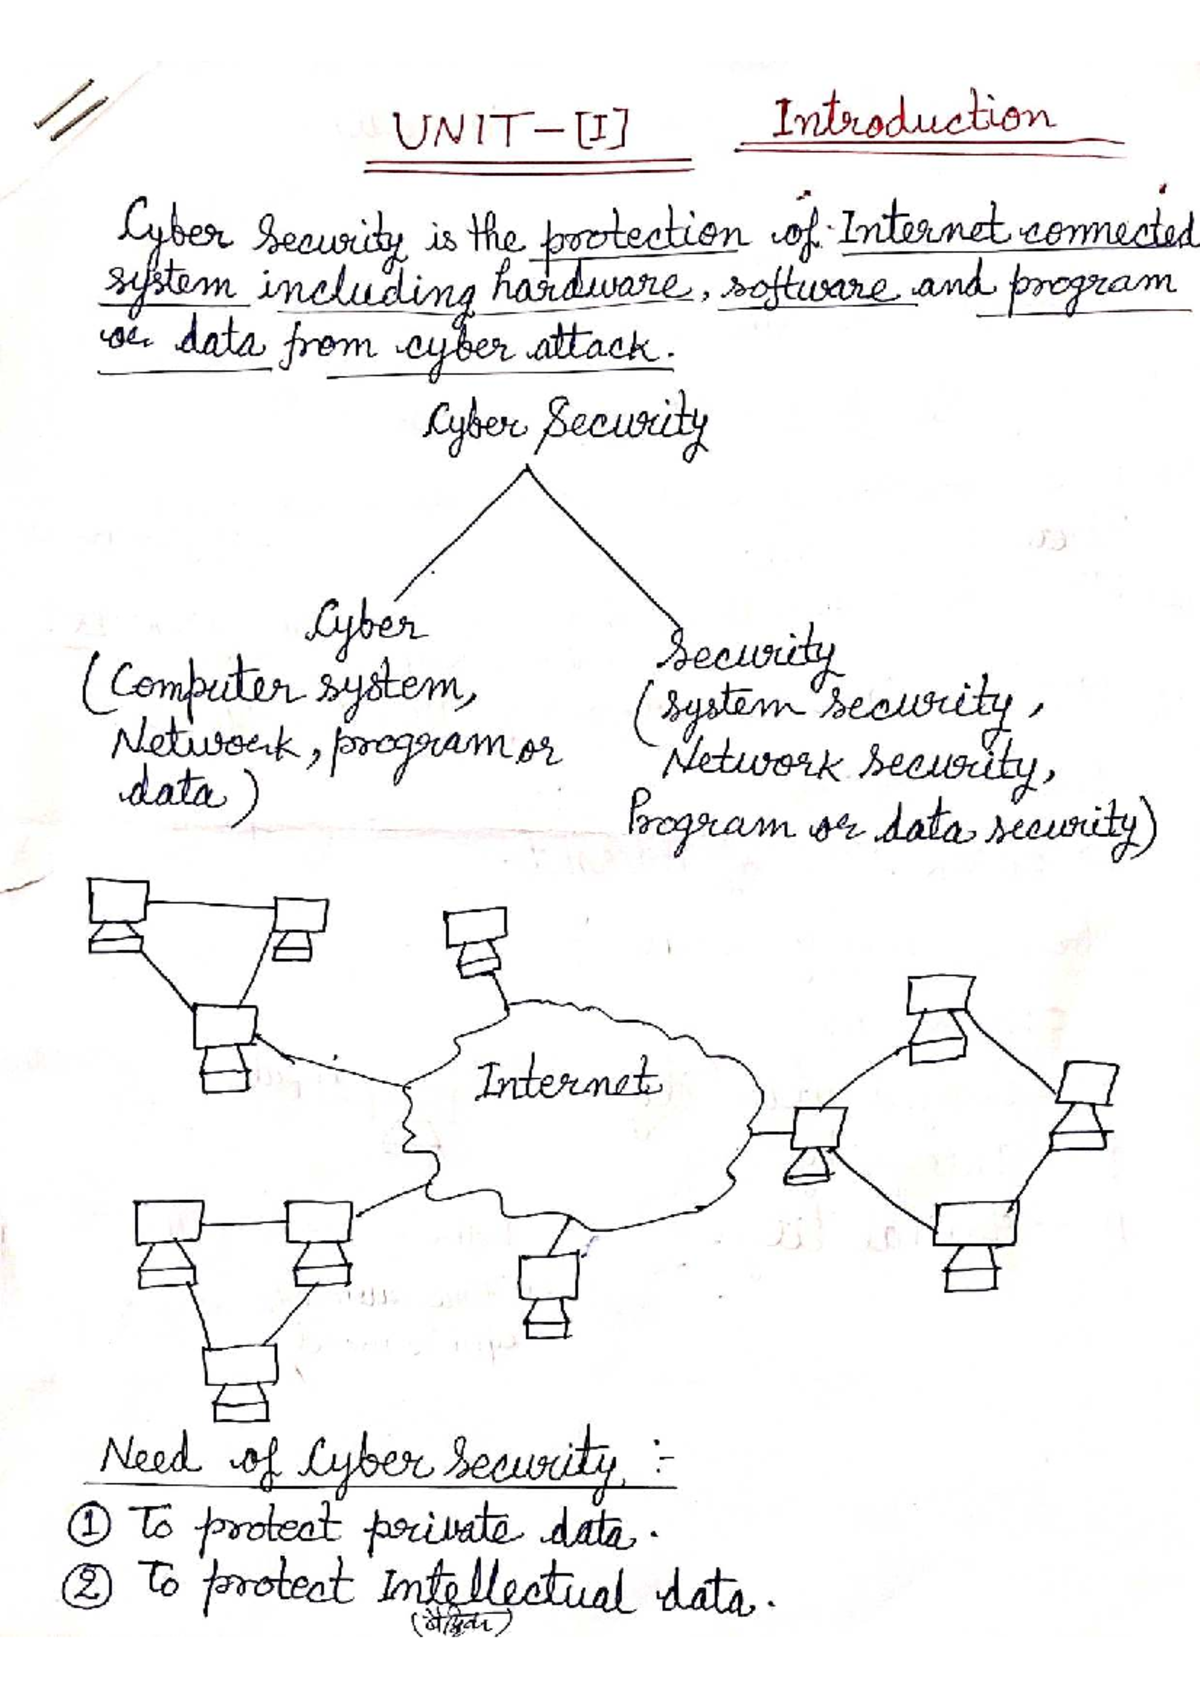 UNIT-[I] Introduction
Cyber Security is the protection of Internet connected
system including hardware, software and program
or data from cyber attack.
Cyber Security
Cyber
(Computer system,
Network, program or
data)
Security
(system security,
Network security,
Program or data security)
Internet
Need of Cyber Security :-
① To protect private data.
② To protect Intellectual data.